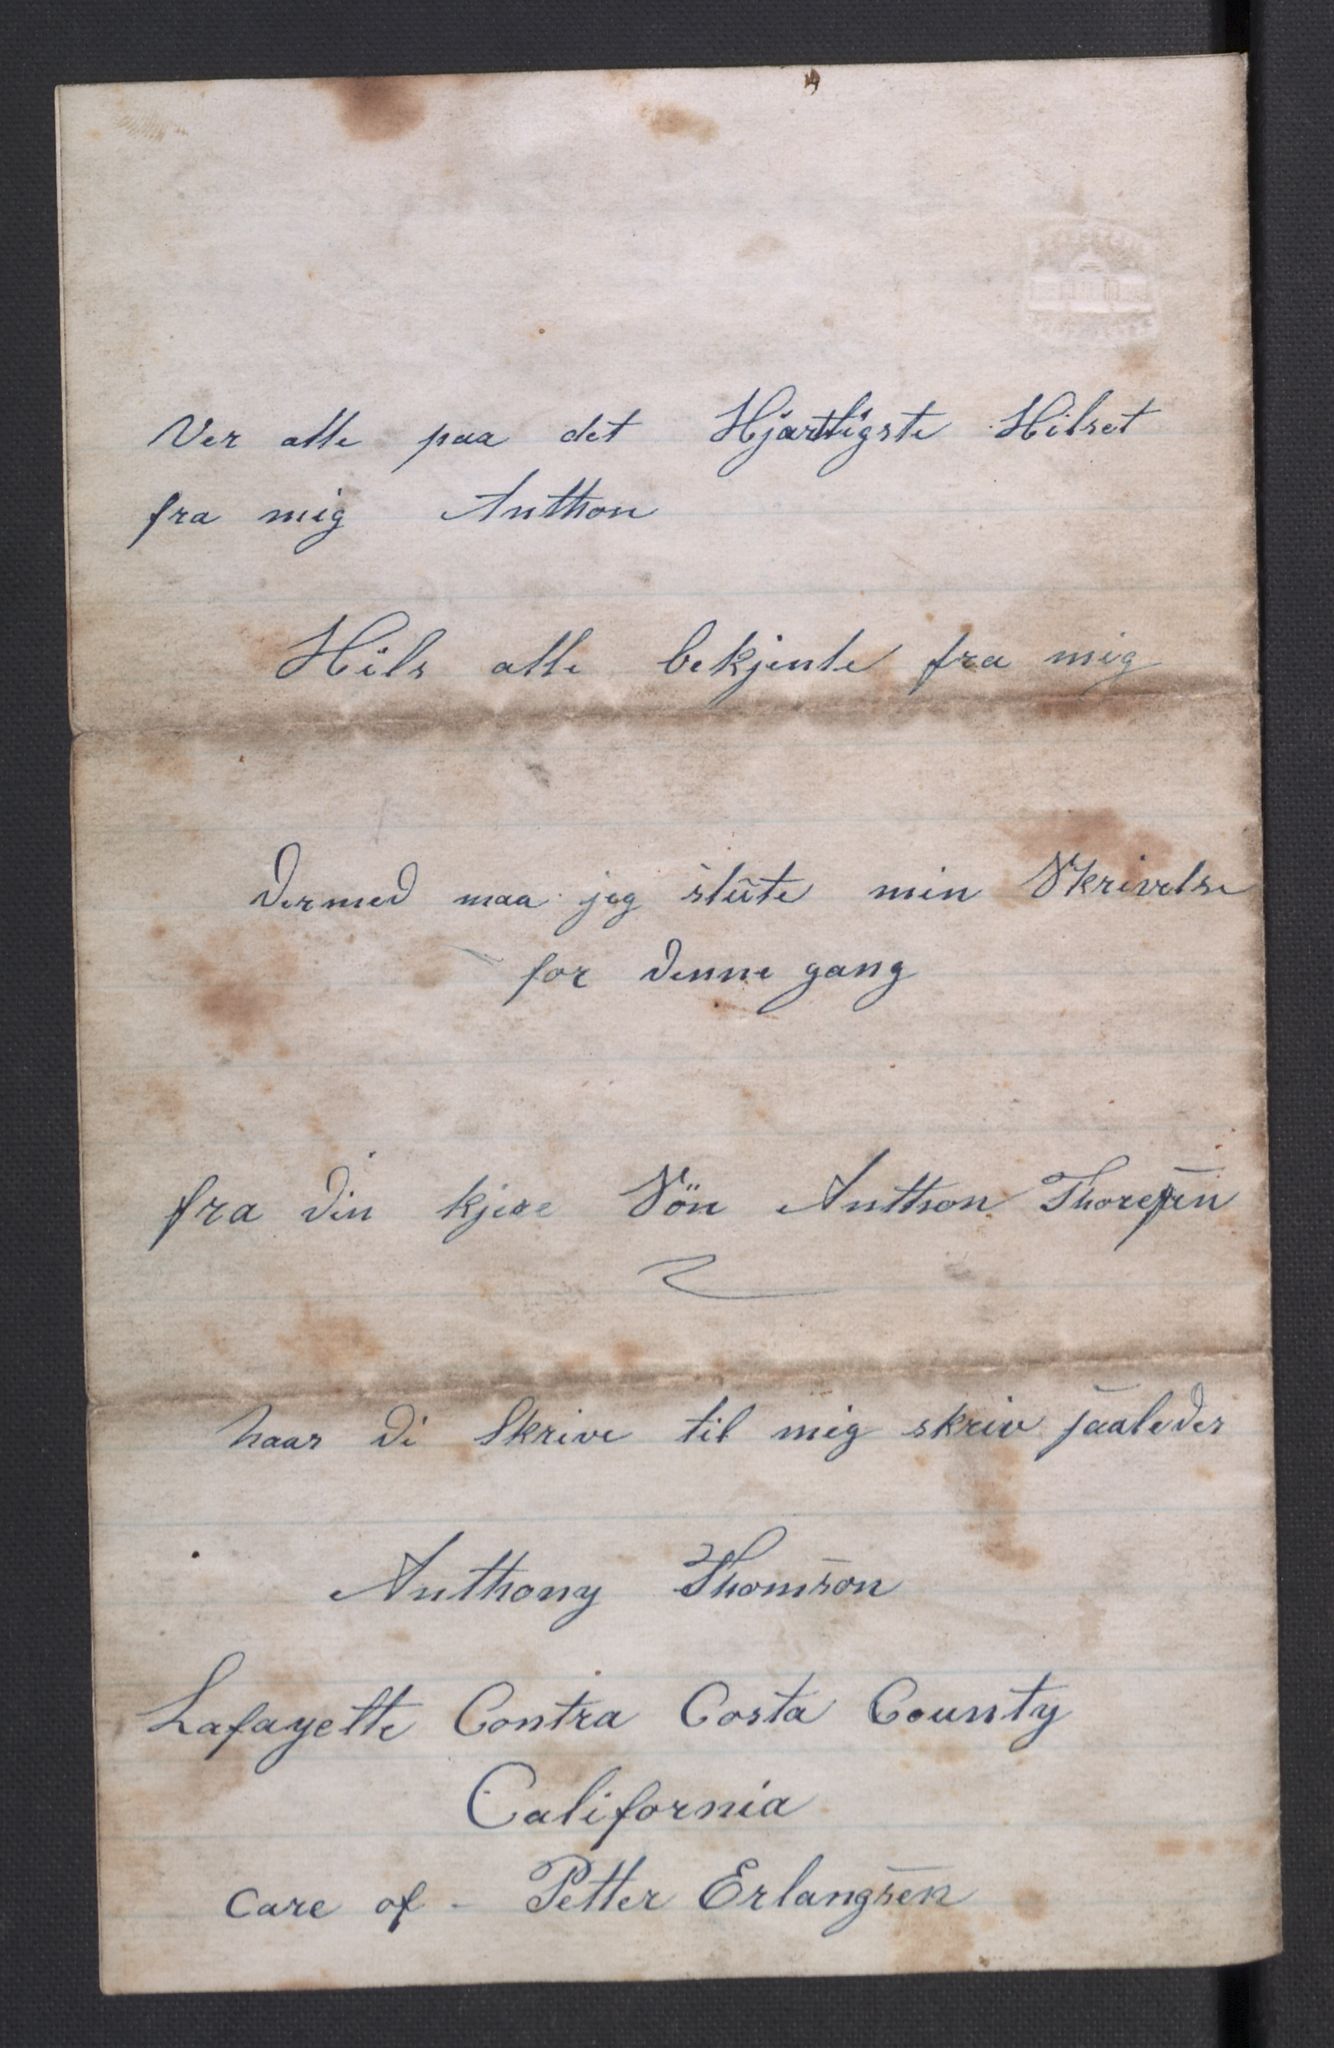 Ver alle paa det Hjartligste Hilset
fra mig Anthon
Hils alle bekjente fra mig
Dermed maa jeg slute min Skrivelse
for denne gang
fra Din kjere Sön Anthon Thoresen
naar Di Skrive til mig skriv saaledes
Anthony Thomson
Lafayette Contra Costa County
California
care of - Petter Erlangsen